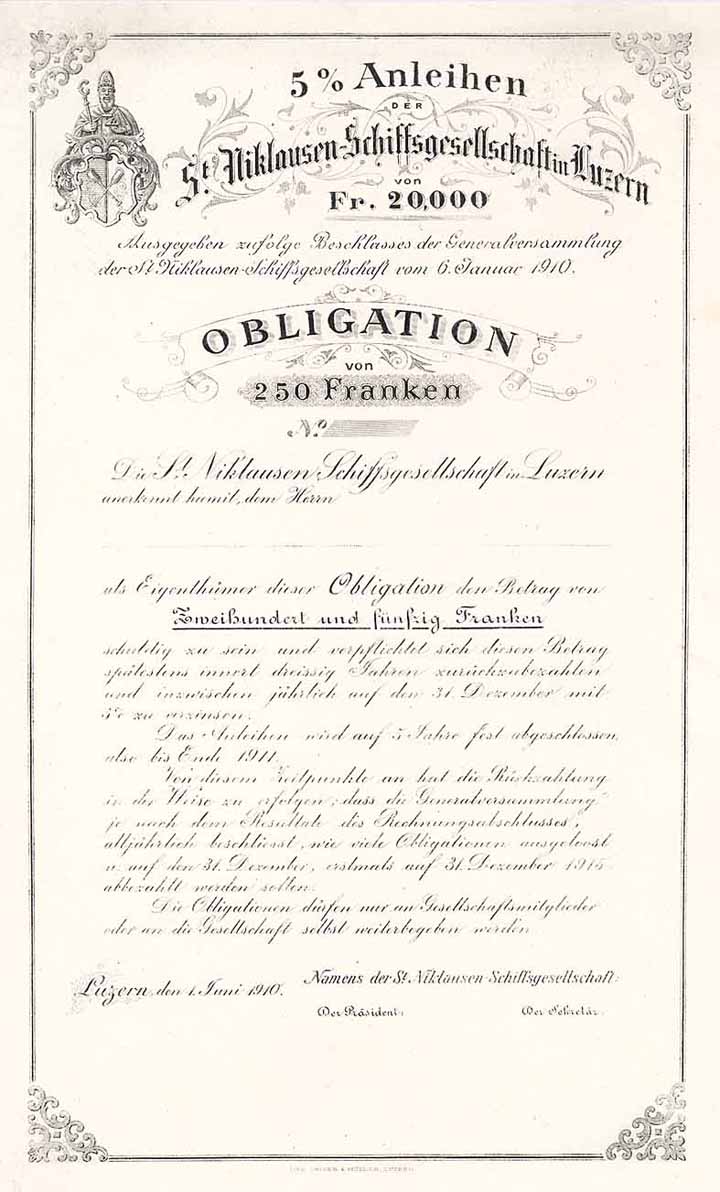 5% Anleihen
DER
St. Niklausen-Schiffsgesellschaft in Luzern
von
Fr. 20,000
Ausgegeben zufolge Beschlusses der Generalversammlung
der St. Niklausen-Schiffsgesellschaft vom 6. Januar 1910.
OBLIGATION
von
250 Franken
No.
Die St. Niklausen Schiffsgesellschaft in Luzern
anerkennt hiemit, dem Herrn
als Eigenthümer dieser Obligation den Betrag von
Zweihundert und fünfzig Franken
schuldig zu sein und verpflichtet sich diesen Betrag
spätestens innert dreissig Jahren zurückzubezahlen
und inzwischen jährlich auf den 31. Dezember mit
5% zu verzinsen.
Das Anleihen wird auf 5 Jahre fest abgeschlossen,
also bis Ende 1911.
Von diesem Zeitpunkte an hat die Rückzahlung
in der Weise zu erfolgen, dass die Generalversammlung
je nach dem Resultate des Rechnungsabschlusses,
alljährlich beschliesst, wie viele Obligationen ausgeloost
u. auf den 31. Dezember, erstmals auf 31. Dezember 1915
abbezahlt werden sollen.
Die Obligationen dürfen nur an Gesellschaftsmitglieder
oder an die Gesellschaft selbst weiterbegeben werden
Luzern, den 1. Juni 1910.
Namens der St. Niklausen-Schiffsgesellschaft:
Der Präsident:
Der Sekretär: